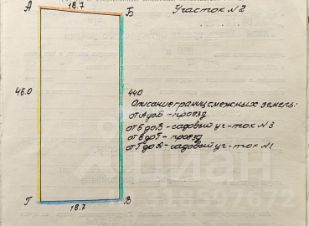 А 18.7 Б Участок №2
48.0 44.0
Описание границ смежных земель:
от А до Б – проезд
от Б до В – садовый уч-ток №3
от В до Г – проезд
от Г до А – садовый уч-ток №1
Г 18.7 В